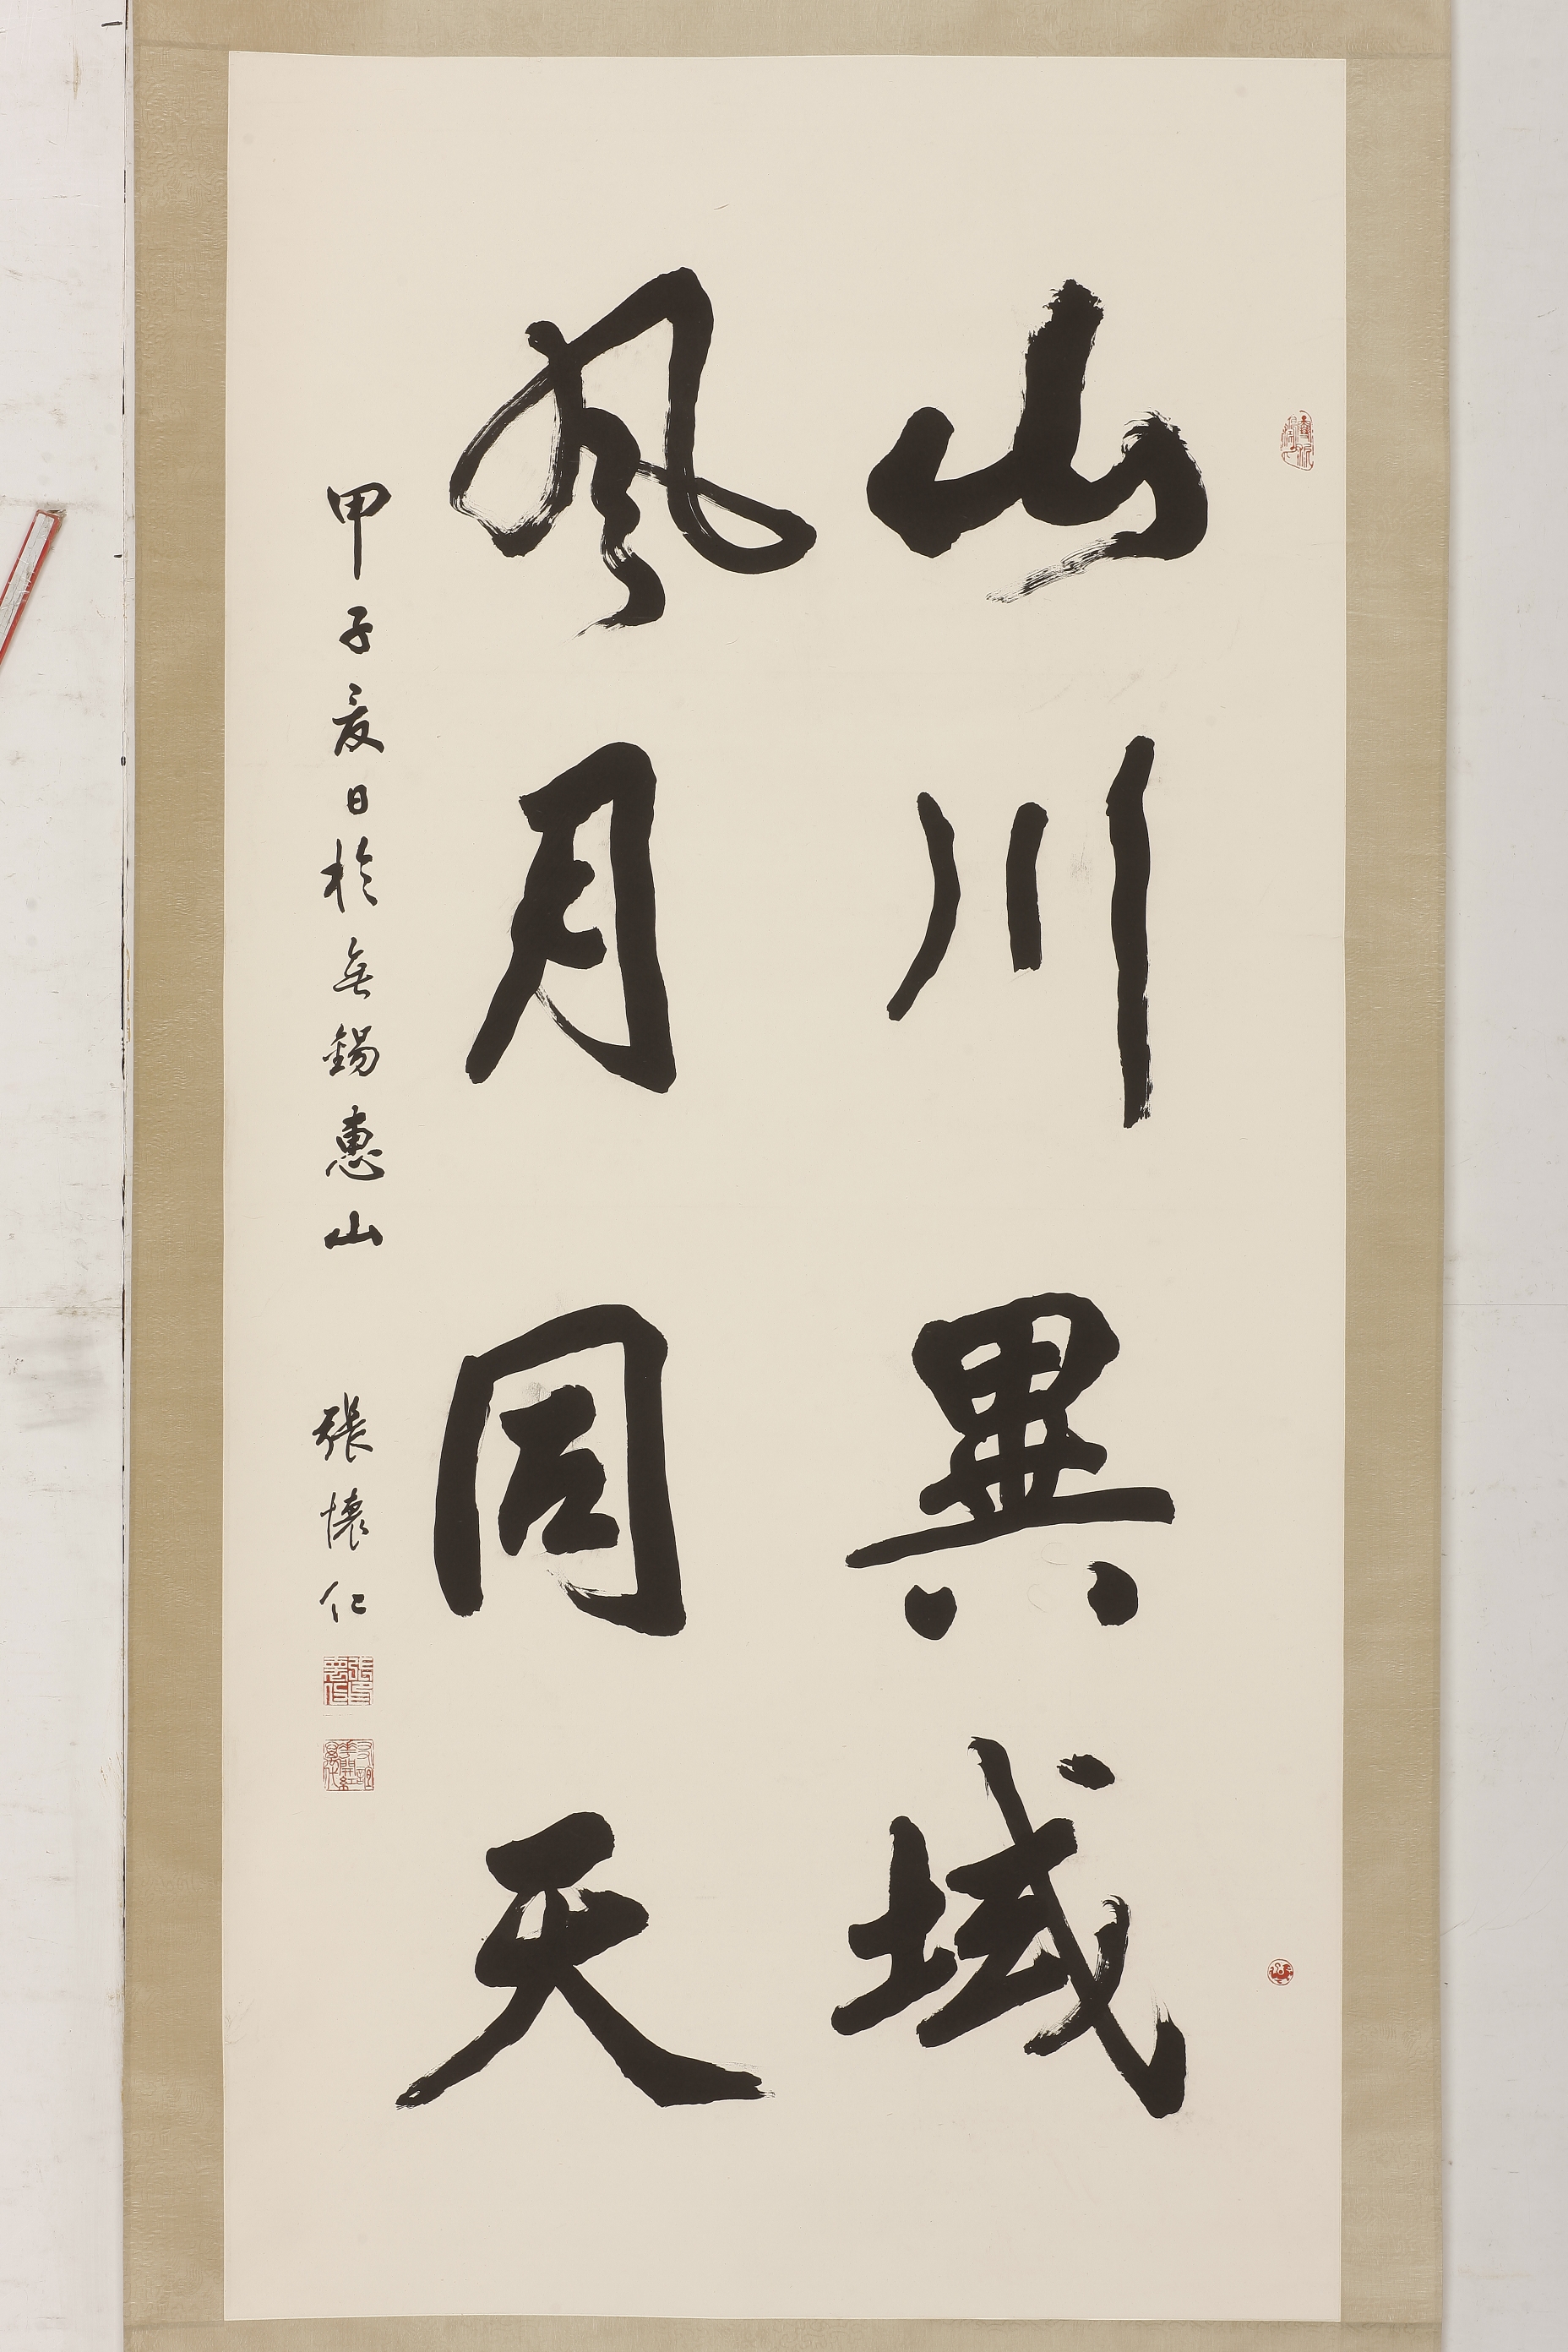 山川異域
風月同天
甲子夏日於無錫惠山 張懷仁